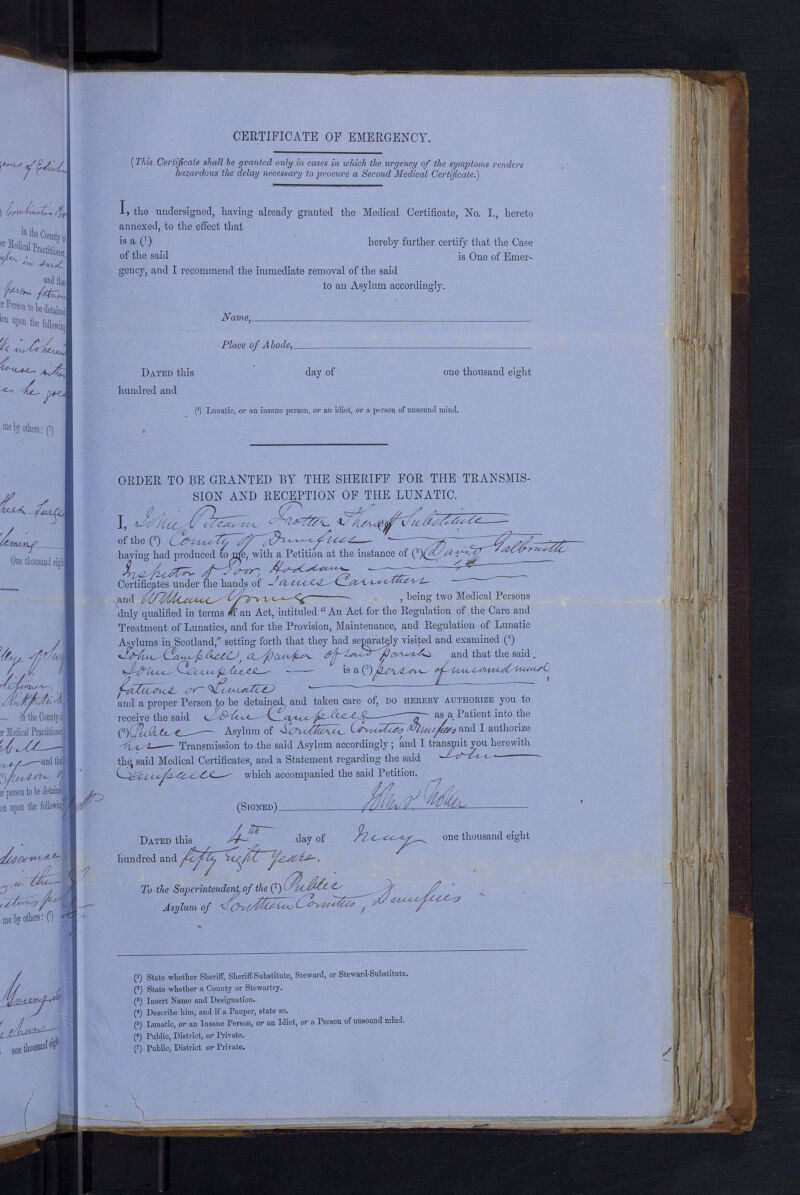 CERTIFICATE OF EMERGENCY.
(This Certificate shall be granted only in cases in which the urgency of the symptoms renders
hazardous the delay necessary to procure a Second Medical Certificate.)
I, the undersigned, having already granted the Medical Certificate, No. I., hereto
annexed, to the effect that
is a (¹) hereby further certify that the Case
of the said is One of Emer-
gency, and I recommend the immediate removal of the said
to an Asylum accordingly.
Name,
Place of Abode,
DATED this day of one thousand eight
hundred and
(¹) Lunatic, or an insane person, or an idiot, or a person of unsound mind.
ORDER TO BE GRANTED BY THE SHERIFF FOR THE TRANSMIS-
SION AND RECEPTION OF THE LUNATIC.
I, John Pitcairn Trotter Sheriff Substitute
of the (²) County of Dumfries
having had produced to me, with a Petition at the instance of (³) David Galbraith
Inspector of Poor, Hoddam
Certificates under the hands of James Carruthers
and William , being two Medical Persons
duly qualified in terms of an Act, intituled "An Act for the Regulation of the Care and
Treatment of Lunatics, and for the Provision, Maintenance, and Regulation of Lunatic
Asylums in Scotland," setting forth that they had separately visited and examined (⁴)
John Campbell, a pauper of said parish and that the said
John Campbell is a (⁵) person of unsound mind
fatuous or Lunatic
and a proper Person to be detained, and taken care of, DO HEREBY AUTHORIZE you to
receive the said John Campbell as a Patient into the
(⁶) Public Asylum of Southern Counties Dumfries and I authorize
his Transmission to the said Asylum accordingly; and I transmit you herewith
the said Medical Certificates, and a Statement regarding the said John
Campbell which accompanied the said Petition.
(SIGNED) John P. Trotter
DATED this 4th day of May one thousand eight
hundred and fifty eight years.
To the Superintendent, of the (⁷) Public
Asylum of Southern Counties, Dumfries
(¹) State whether Sheriff, Sheriff-Substitute, Steward, or Steward-Substitute.
(²) State whether a County or Stewartry.
(³) Insert Name and Designation.
(⁴) Describe him, and if a Pauper, state so.
(⁵) Lunatic, or an Insane Person, or an Idiot, or a Person of unsound mind.
(⁶) Public, District, or Private.
(⁷) Public, District or Private.
in the County of
Medical Practitioner
and that
Person to be detained
upon the following
me by others: (⁷)
One thousand eight
in the County
Medical Practitioner
and that
person to be detained
upon the following
me by others: (⁷)
one thousand eight